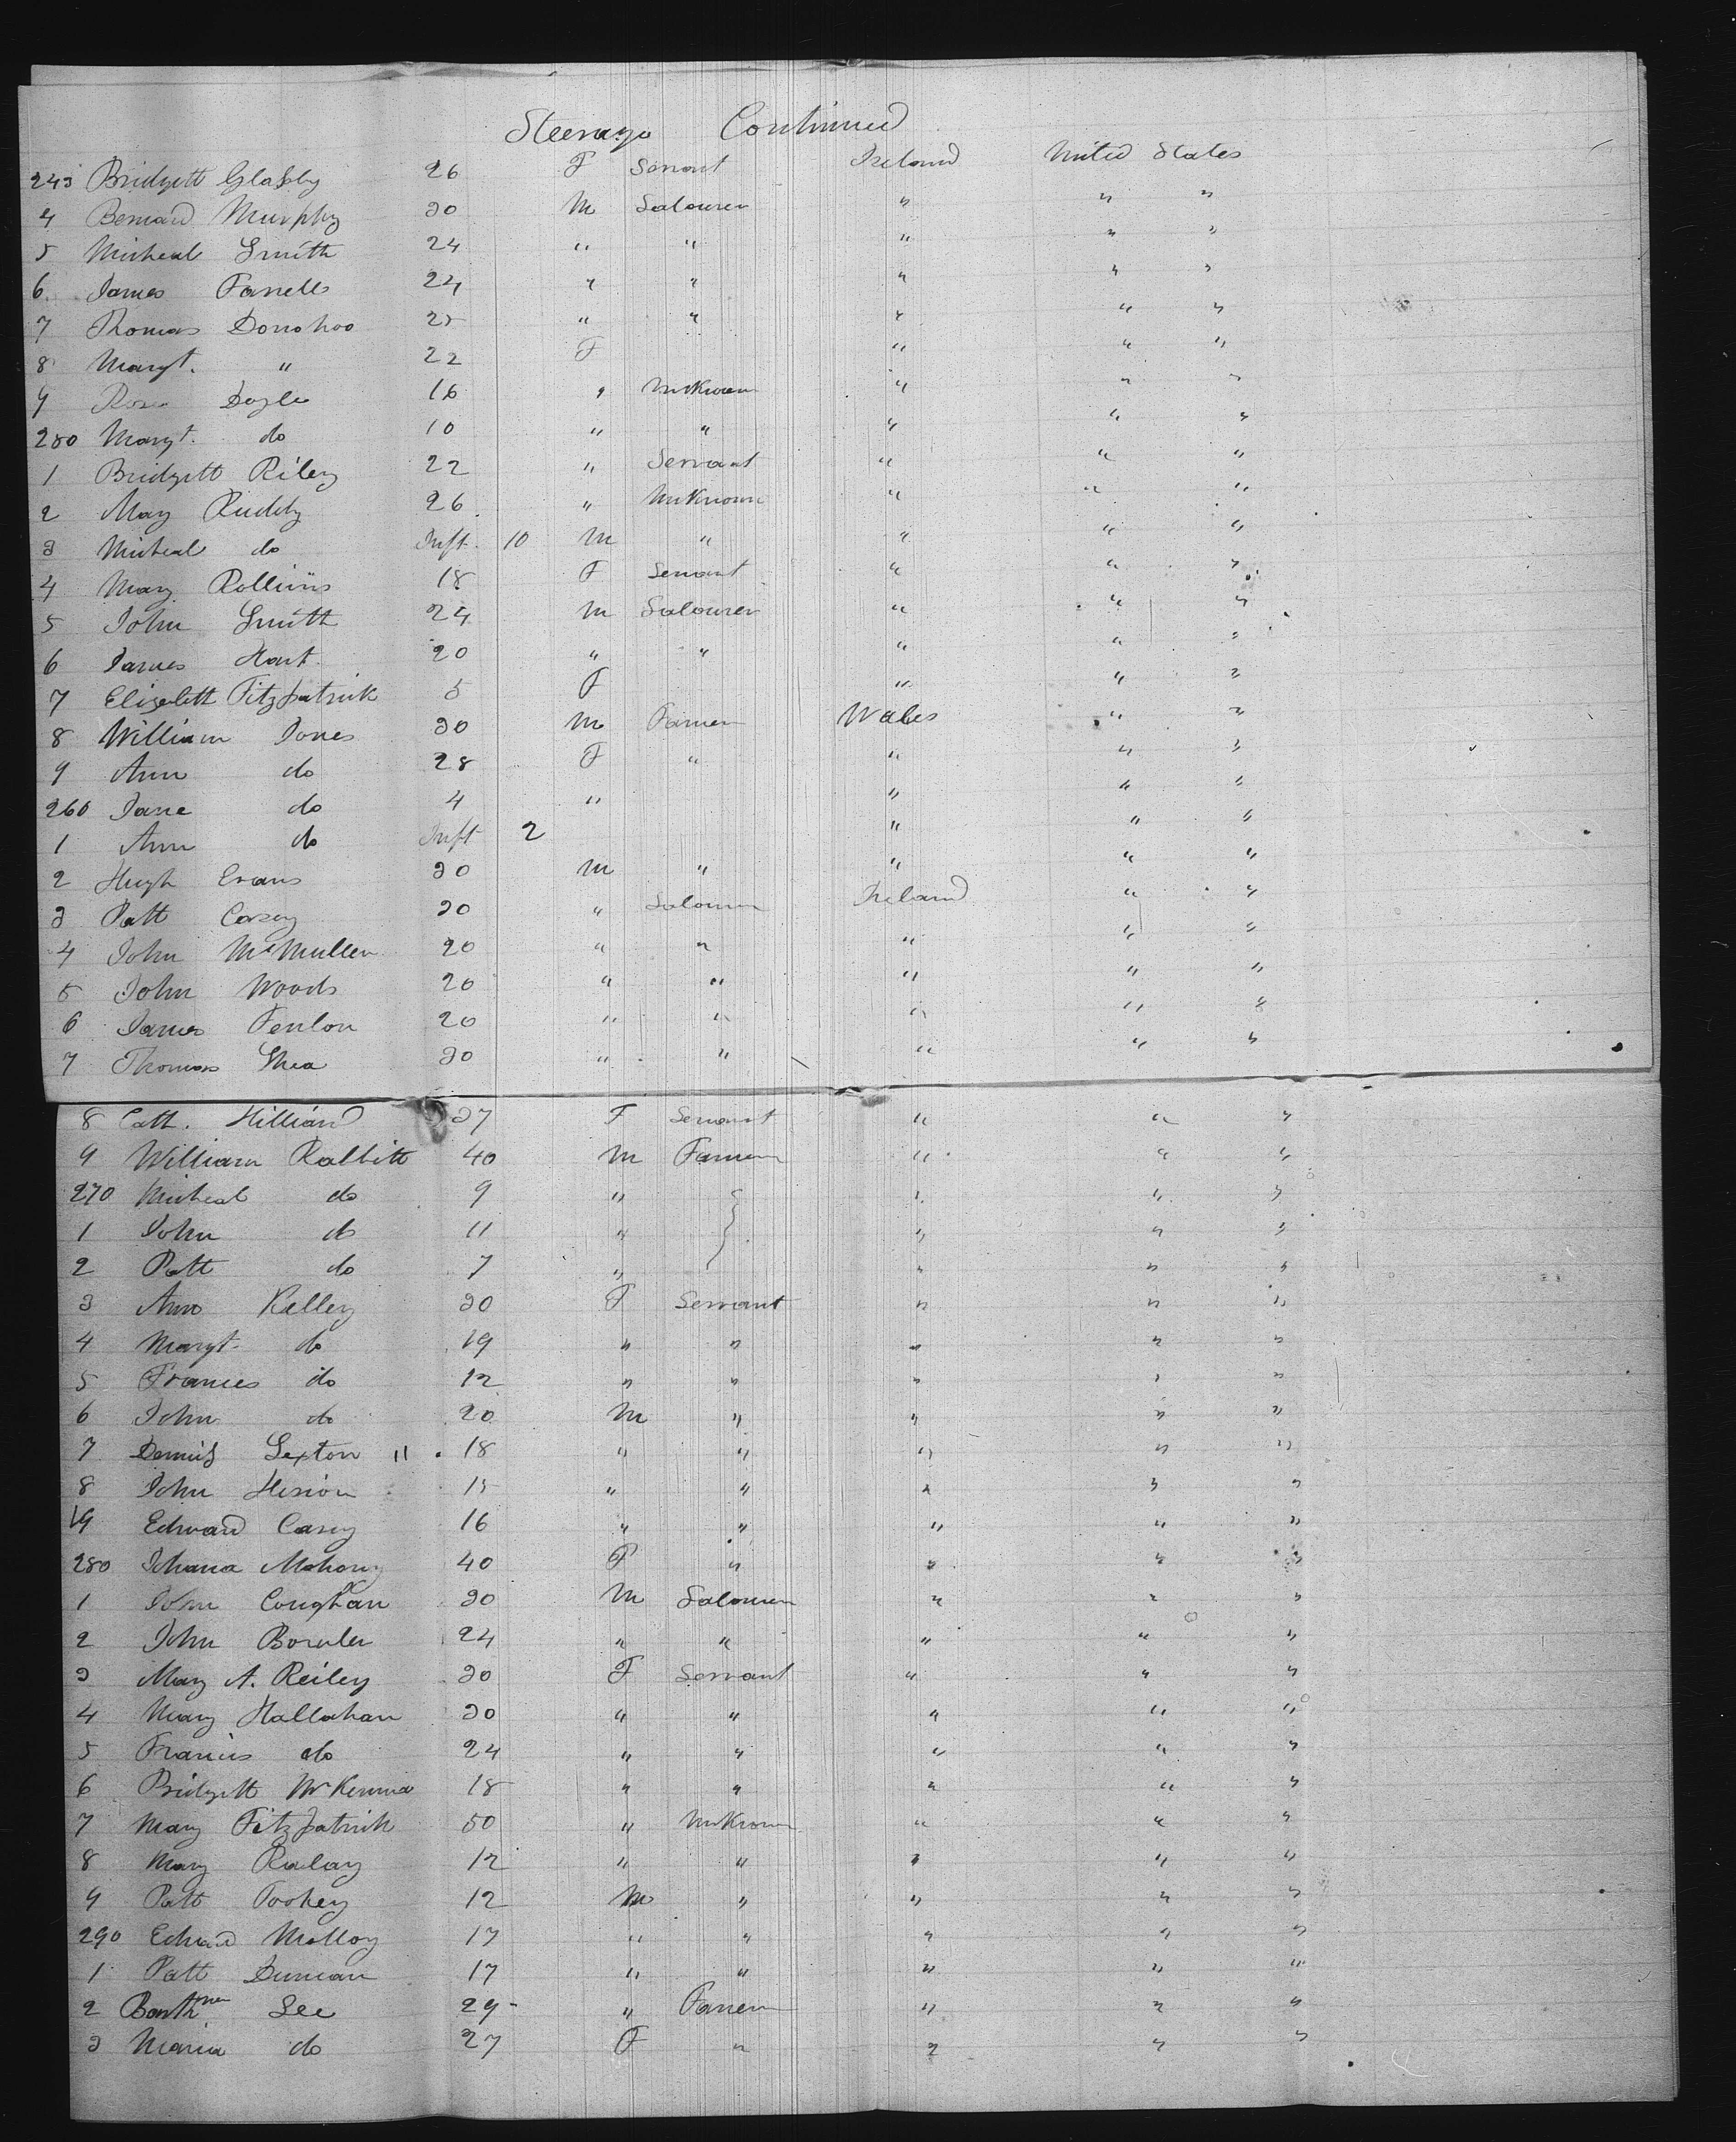 Steerage Continued
243 Bridgett Glasby 26 F Servant Ireland United States
4 Bernard Murphy 30 M Labourer " " "
5 Micheal Smith 24 " " " " "
6 James Farrell 24 " " " " "
7 Thomas Donohoo 25 " " " " "
8 Margt. " 22 F " " "
9 Rose Doyle 16 " Unknown " " "
250 Margt. do 10 " " " " "
1 Bridgett Riley 22 " Servant " " "
2 May Ruddy 26 " Unknown " " "
3 Micheal do Inft. 10 M " " " "
4 Mary Rollins 18 F Servant " " "
5 John Smith 24 M Labourer " " "
6 James Hart 20 " " " " "
7 Elizabett Fitzpatrick 5 F " " "
8 William Jones 30 M Farmer Wales " "
9 Ann do 28 F " " " "
260 Jane do 4 " " " "
1 Ann do Inft 2 " " "
2 Hugh Evans 30 M " " " "
3 Patt Casey 30 " Labourer Ireland " "
4 John McMullen 20 " " " " "
5 John Woods 20 " " " " "
6 James Fenlon 20 " " " " "
7 Thomas Shea 30 " " " " "
8 Cath. Hilliard 37 F Servant " " "
9 William Rabbitt 40 M Farmer " " "
270 Micheal do 9 " " " "
1 John do 11 " " " "
2 Patt do 7 " " " "
3 Ann Kelley 30 F Servant " " "
4 Margt do 19 " " " " "
5 Frances do 12 " " " " "
6 John do 20 M " " " "
7 Dennis Sexton " 18 " " " " "
8 John 15 " " " " "
9 Edward Casey 16 " " " " "
280 Johana Mahony 40 F " " " "
1 John Coughlan 30 M Labourer " " "
2 John Bowler 24 " " " " "
3 Mary A. Reiley 30 F Servant " " "
4 Mary Hallahan 30 " " " " "
5 Francis do 24 " " " " "
6 Bridgett McKenna 18 " " " " "
7 Mary Fitzpatrick 50 " Unknown " " "
8 Mary 12 " " " " "
9 Patt Toohey 12 M " " " "
290 Edward Molloy 17 " " " " "
1 Patt Duncan 17 " " " " "
2 Lee 29 " Farmer " " "
3 Maria do 27 F " " " "